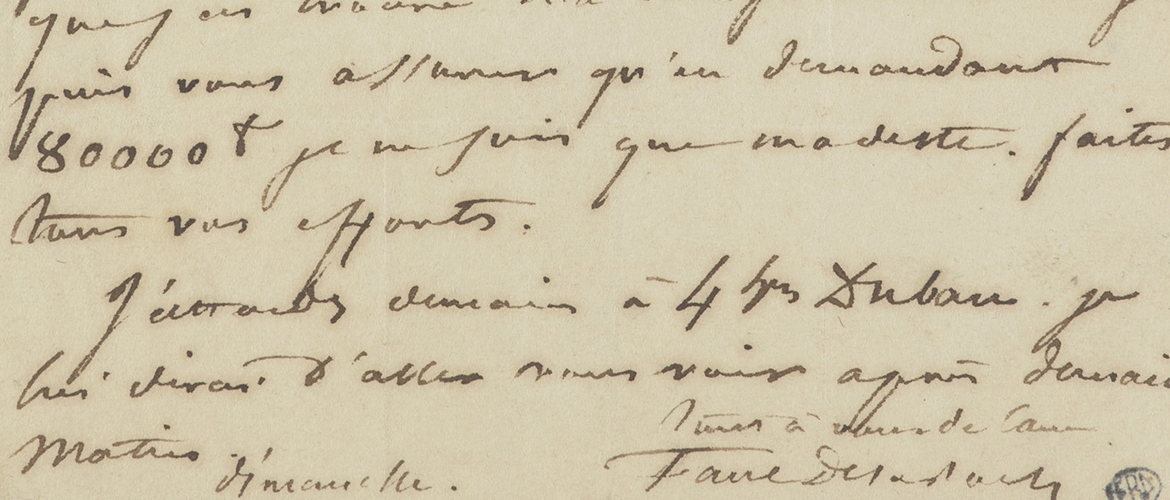 que
puis vous assurer qu'en demandant
80000 f je ne suis que modeste. faites
tous vos efforts.
J'attends demain à 4 hrs Duban. je
lui dirai d'aller vous voir après demain
matin.
tout à vous de
dimanche.